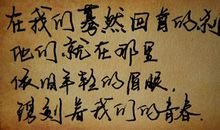 在我们蓦然回首的刹
他们就在那里
依旧年轻的眉眼
镌刻着我们的青春.